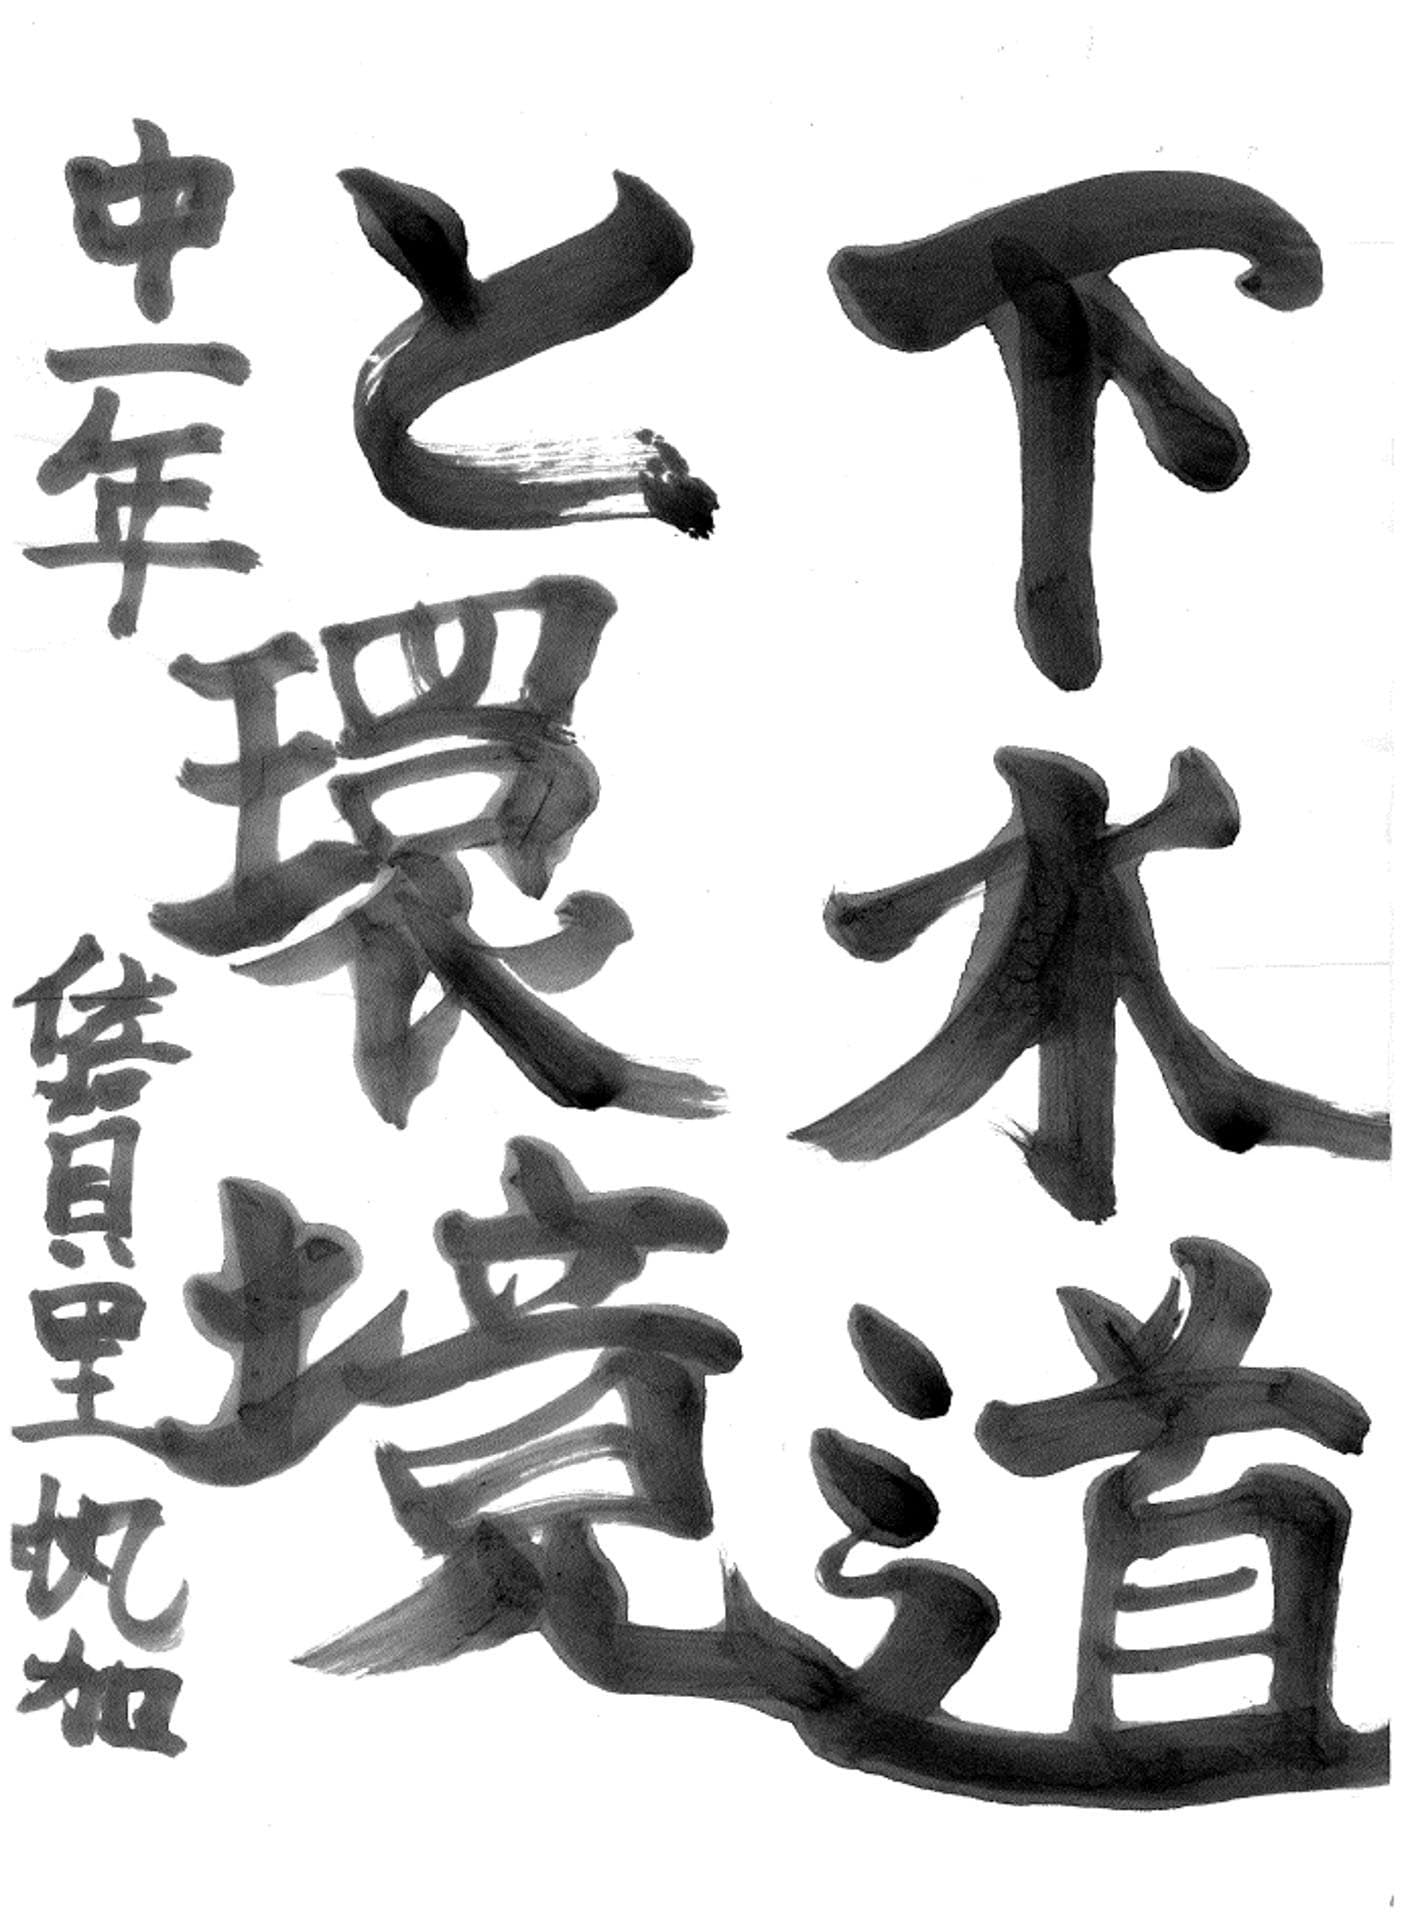 下水道
と環境
中一年 里帆加